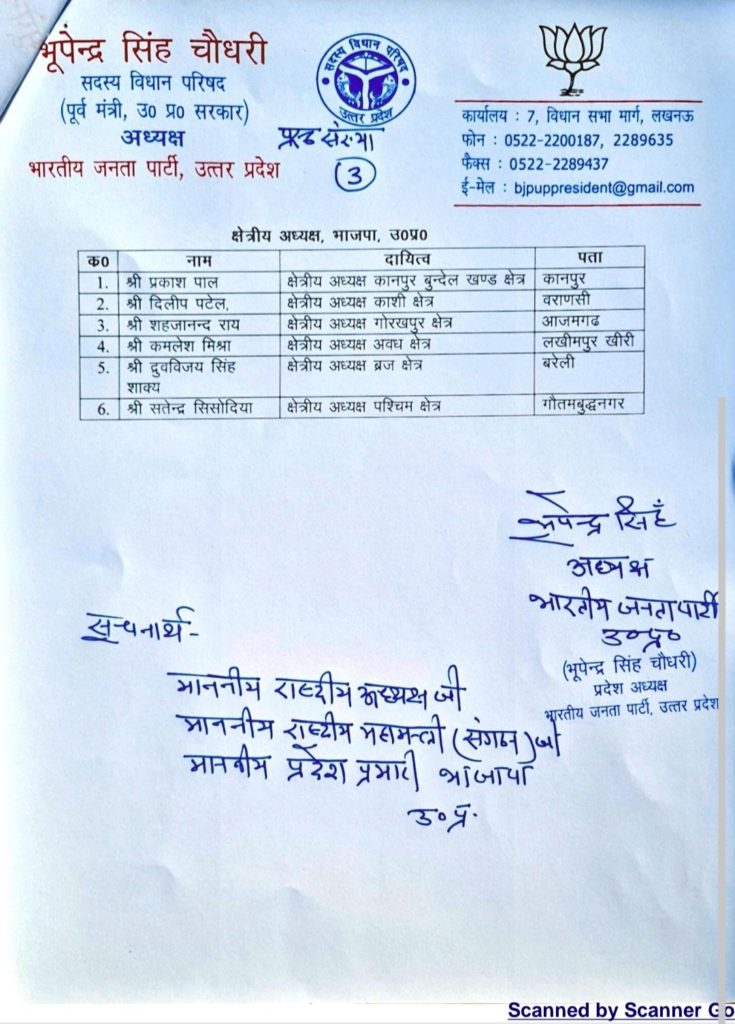 भूपेन्द्र सिंह चौधरी
सदस्य विधान परिषद
(पूर्व मंत्री, उ0 प्र0 सरकार)
अध्यक्ष
भारतीय जनता पार्टी, उत्तर प्रदेश
सदस्य विधान परिषद्
उत्तर प्रदेश
पृष्ठ संख्या
3
कार्यालय : 7, विधान सभा मार्ग, लखनऊ
फोन : 0522-2200187, 2289635
फैक्स : 0522-2289437
ई-मेल : bjpuppresident@gmail.com
क्षेत्रीय अध्यक्ष, भाजपा, उ0प्र0
क0 नाम दायित्व पता
1. श्री प्रकाश पाल क्षेत्रीय अध्यक्ष कानपुर बुन्देल खण्ड क्षेत्र कानपुर
2. श्री दिलीप पटेल, क्षेत्रीय अध्यक्ष काशी क्षेत्र वराणसी
3. श्री शहजानन्द राय क्षेत्रीय अध्यक्ष गोरखपुर क्षेत्र आजमगढ
4. श्री कमलेश मिश्रा क्षेत्रीय अध्यक्ष अवध क्षेत्र लखीमपुर खीरी
5. श्री दुवविजय सिंह क्षेत्रीय अध्यक्ष ब्रज क्षेत्र बरेली
शाक्य
6. श्री सतेन्द्र सिसोदिया क्षेत्रीय अध्यक्ष पश्चिम क्षेत्र गौतमबुद्धनगर
भूपेन्द्र सिंह
अध्यक्ष
भारतीय जनता पार्टी
उ०प्र०
(भूपेन्द्र सिंह चौधरी)
प्रदेश अध्यक्ष
भारतीय जनता पार्टी, उत्तर प्रदेश
सूचनार्थ-
माननीय राष्ट्रीय अध्यक्ष जी
माननीय राष्ट्रीय महामन्त्री (संगठन) जी
माननीय प्रदेश प्रभारी भाजपा
उ०प्र.
Scanned by Scanner Go